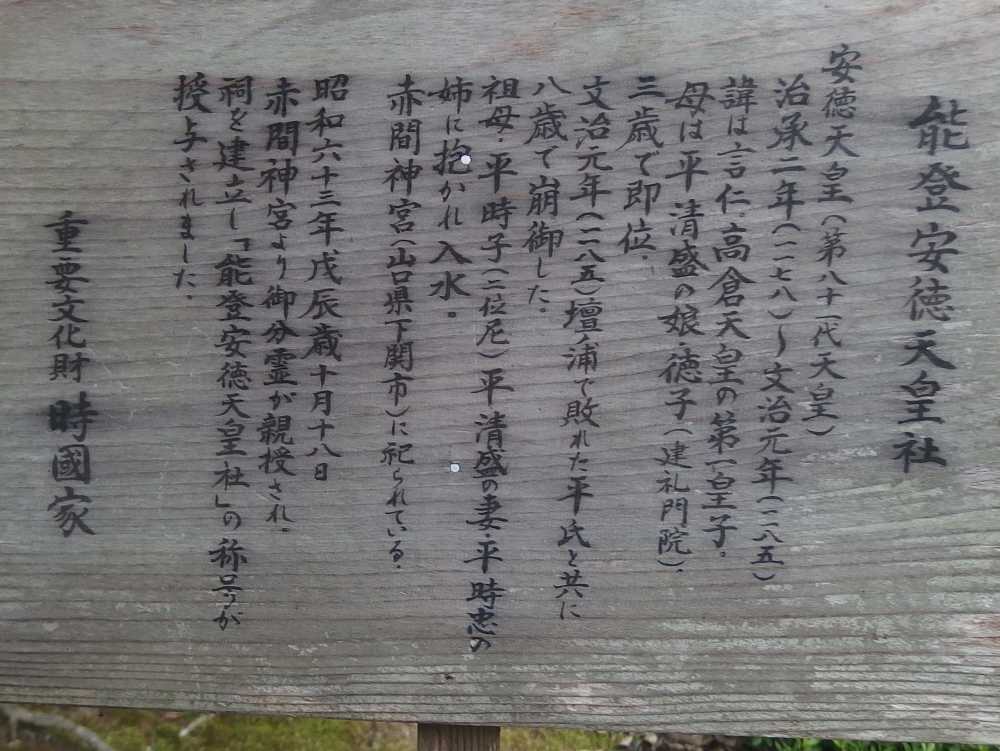 能登安徳天皇社
安徳天皇(第八十一代天皇)
治承二年(一一七八)〜文治元年(一一八五)
諱は言仁、高倉天皇の第一皇子。
母は平清盛の娘・徳子(建礼門院)。
三歳で即位。
文治元年(一一八五)壇ノ浦で敗れた平氏と共に
八歳で崩御した。
祖母・平時子(二位尼)平清盛の妻・平時忠の
姉に抱かれ入水。
赤間神宮(山口県下関市)に祀られている。
昭和六十三年戊辰歳十月十八日
赤間神宮より御分霊が親授され、
祠を建立し「能登安徳天皇社」の称号が
授与されました。
重要文化財 時國家